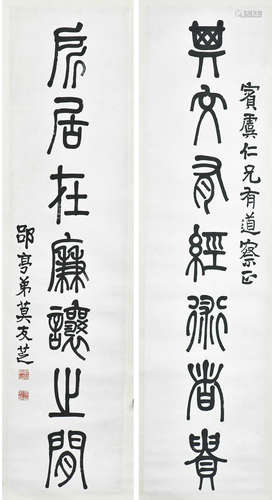 其文有經術者貴
賓虞仁兄有道察正
所居在廉讓之間
郘亭弟莫友芝